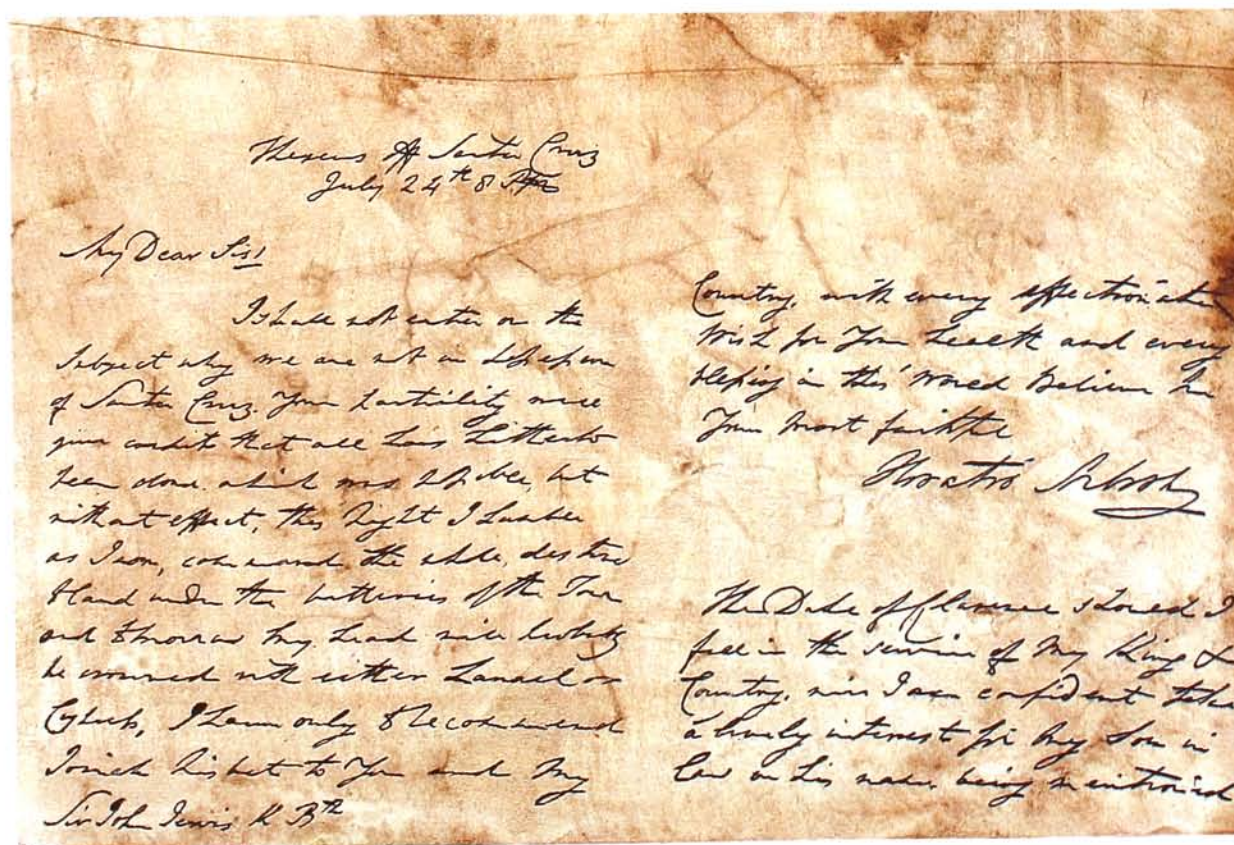 Theseus Off Santa Cruz
July 24th 8 PM
My Dear Sir!
I shall not enter on the
Subject why we are not in possession
of Santa Cruz. Your partiality will
give credit that all has hitherto
been done which was possible, but
without effect, this Night I humble
as I am, command the whole, destined
to land under the batteries of the Town
and tomorrow my head will probably
be crowned with either Laurel or
Cypress, I have only to recommend
Josiah Nisbet to You and My
Sir John Jervis K Bth
Country, with every affectionate
Wish for Your health and every
blessing in this World Believe Me
Your Most faithful
Horatio Nelson
The Duke of Clarence should I
fall in the service of My King &
Country, will I am confident take
a lively interest for My Son in
Law on his name being mentioned